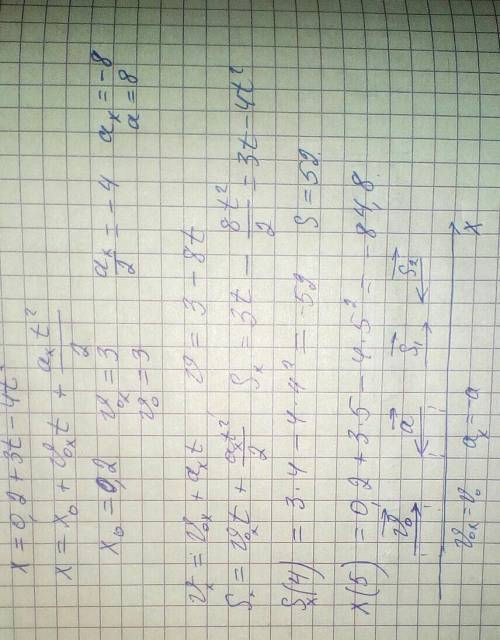 x = 0,2 + 3t - 4t²
x = x₀ + v₀ₓt + aₓt²/2
x₀ = 0,2 v₀ₓ = 3 aₓ/2 = -4 aₓ = -8
v₀ = 3 a = 8
vₓ = v₀ₓ + aₓt v = 3 - 8t
Sₓ = v₀ₓt + aₓt²/2 Sₓ = 3t - 8t²/2 = 3t - 4t²
Sₓ(4) = 3·4 - 4·4² = -52 S = 52
x(5) = 0,2 + 3·5 - 4·5² = -84,8
v⃗₀ a⃗ S⃗₁ S⃗₂
x
v₀ₓ = v₀ aₓ = -a